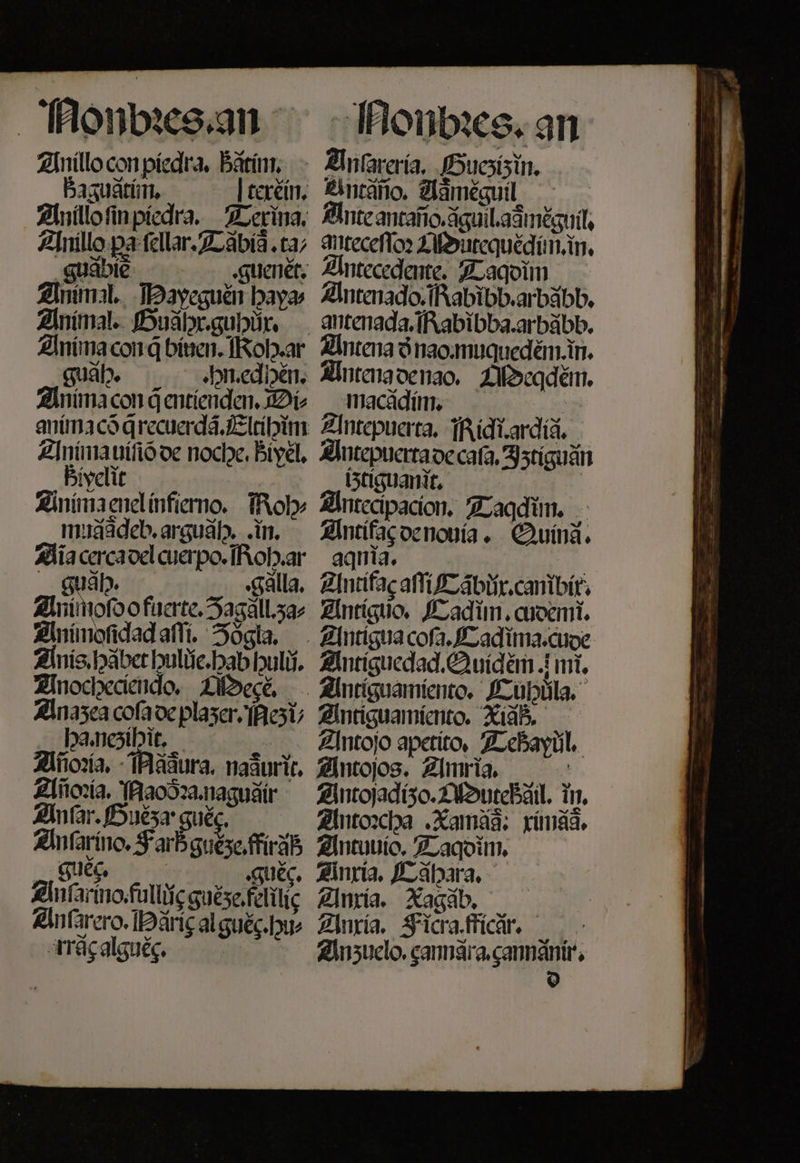 Nonbres.an
Anillo con piedra. Bátim.
Baguátim. | teréin.
Anillo sin piedra. Terina.
Anillo pa sellar. Tábiâ. ta/
guábié .guenêt.
Animal. Hayeguên haya/
Animal. Guáhx.guhûx.
Anima con q̃ biuen. Roh.ar
guáh. .hn.edihên.
Anima con q̃ entienden. Di/
anima cō q̃ recuerdã. Eltihim
Anima uisiō de noche. Biyêl.
Biyelit
Anima en el infierno. Roh/
muââdeb. arguâh. .in.
Alia cerca del cuerpo. Roh.ar
guâh. .gâlla.
Animoso o fuerte. Jagâll.ja/
Animosidad assi. Jógla.
Anis. hâbet hulûe. hab hulû.
Anocheciendo. Mecê.
Anazea cosa de plazer. Nezi/
ha.nezihit.
Añoria. Naâura. naâurit.
Añoria. Naoôra.naguâir
Ansar. Guêza guêç.
Ansarino. Farh guêze.ffirâh
guêç. .guêç.
Ansarino. fullûç guêze.felilîç
Ansarero. Hâriç al guêç.hu/
rrâç alguêç.
Nonbres. an
Ansareria. Guezizin.
Antaño. Aâméguil
Ante antaño. âguil.aâméguil.
antecessor Moutequêdim.in.
Antecedente. Taqdim
Antenado. Rabibb.arbâbb.
antenada. Rabibba.arbâbb.
Antena d nao. muquedêm.in.
Antena de nao. Mocqdêm.
macâdim.
Antepuerta. Ridî.ardiâ.
Antepuerta de casa. Jstiguân
istiguanit.
Antecipacion. Taqdim.
Antifaç de nouia. Quinâ.
aqnia.
Antifaç assi Câbûx.canibix.
Antiguo. Cadim. cudemî.
Antigua cosa. Cadima.cude
Antiguedad. Quidêm. l mi.
Antiguamiento. Cubûla.
Antiguamiento. Xiâb.
Antojo apetito. Tehayûl.
Antojos. Amria.
Antojadizo. Moutebâil. in.
Antorcha .Xamââ; ximââ.
Antuuio. Taqdim.
Anxia. Câhara.
Anxia. Xagâb.
Anxia. Ficra.fficâr.
Anzuelo. çannâra.çannânir.
d